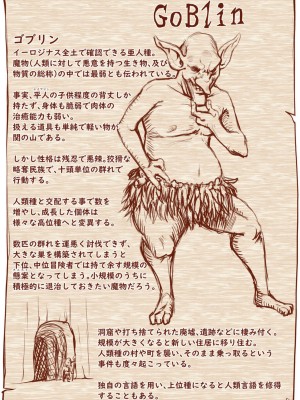 GoBlin
ゴブリン
イーロジナス全土で確認できる亜人種。
魔物(人類に対して悪意を持つ生き物、及び
物質の総称)の中では最弱とも伝われている。
事実、平人の子供程度の背丈しか
持たず、身体も脆弱で肉体の
治癒能力も弱い。
扱える道具も単純で軽い物が
関の山である。
しかし性格は残忍で悪辣。狡猾な
略奪民族で、十頭単位の群れで
行動する。
人類種と交配する事で数を
増やし、成長した個体は
様々な高位種へと変異する。
数匹の群れを運悪く討伐できず、
大きな巣を構築されてしまうと
下位、中位冒険者では持て余す規模の
懸案となってしまう。小規模のうちに
積極的に退治しておきたい魔物だろう。
洞窟や打ち捨てられた廃墟、遺跡などに棲み付く。
規模が大きくなると新しい住居に移り住む。
人類種の村や町を襲い、そのまま乗っ取るという
事件も度々起こっている。
独自の言語を用い、上位種になると人類言語を修得
することもある。